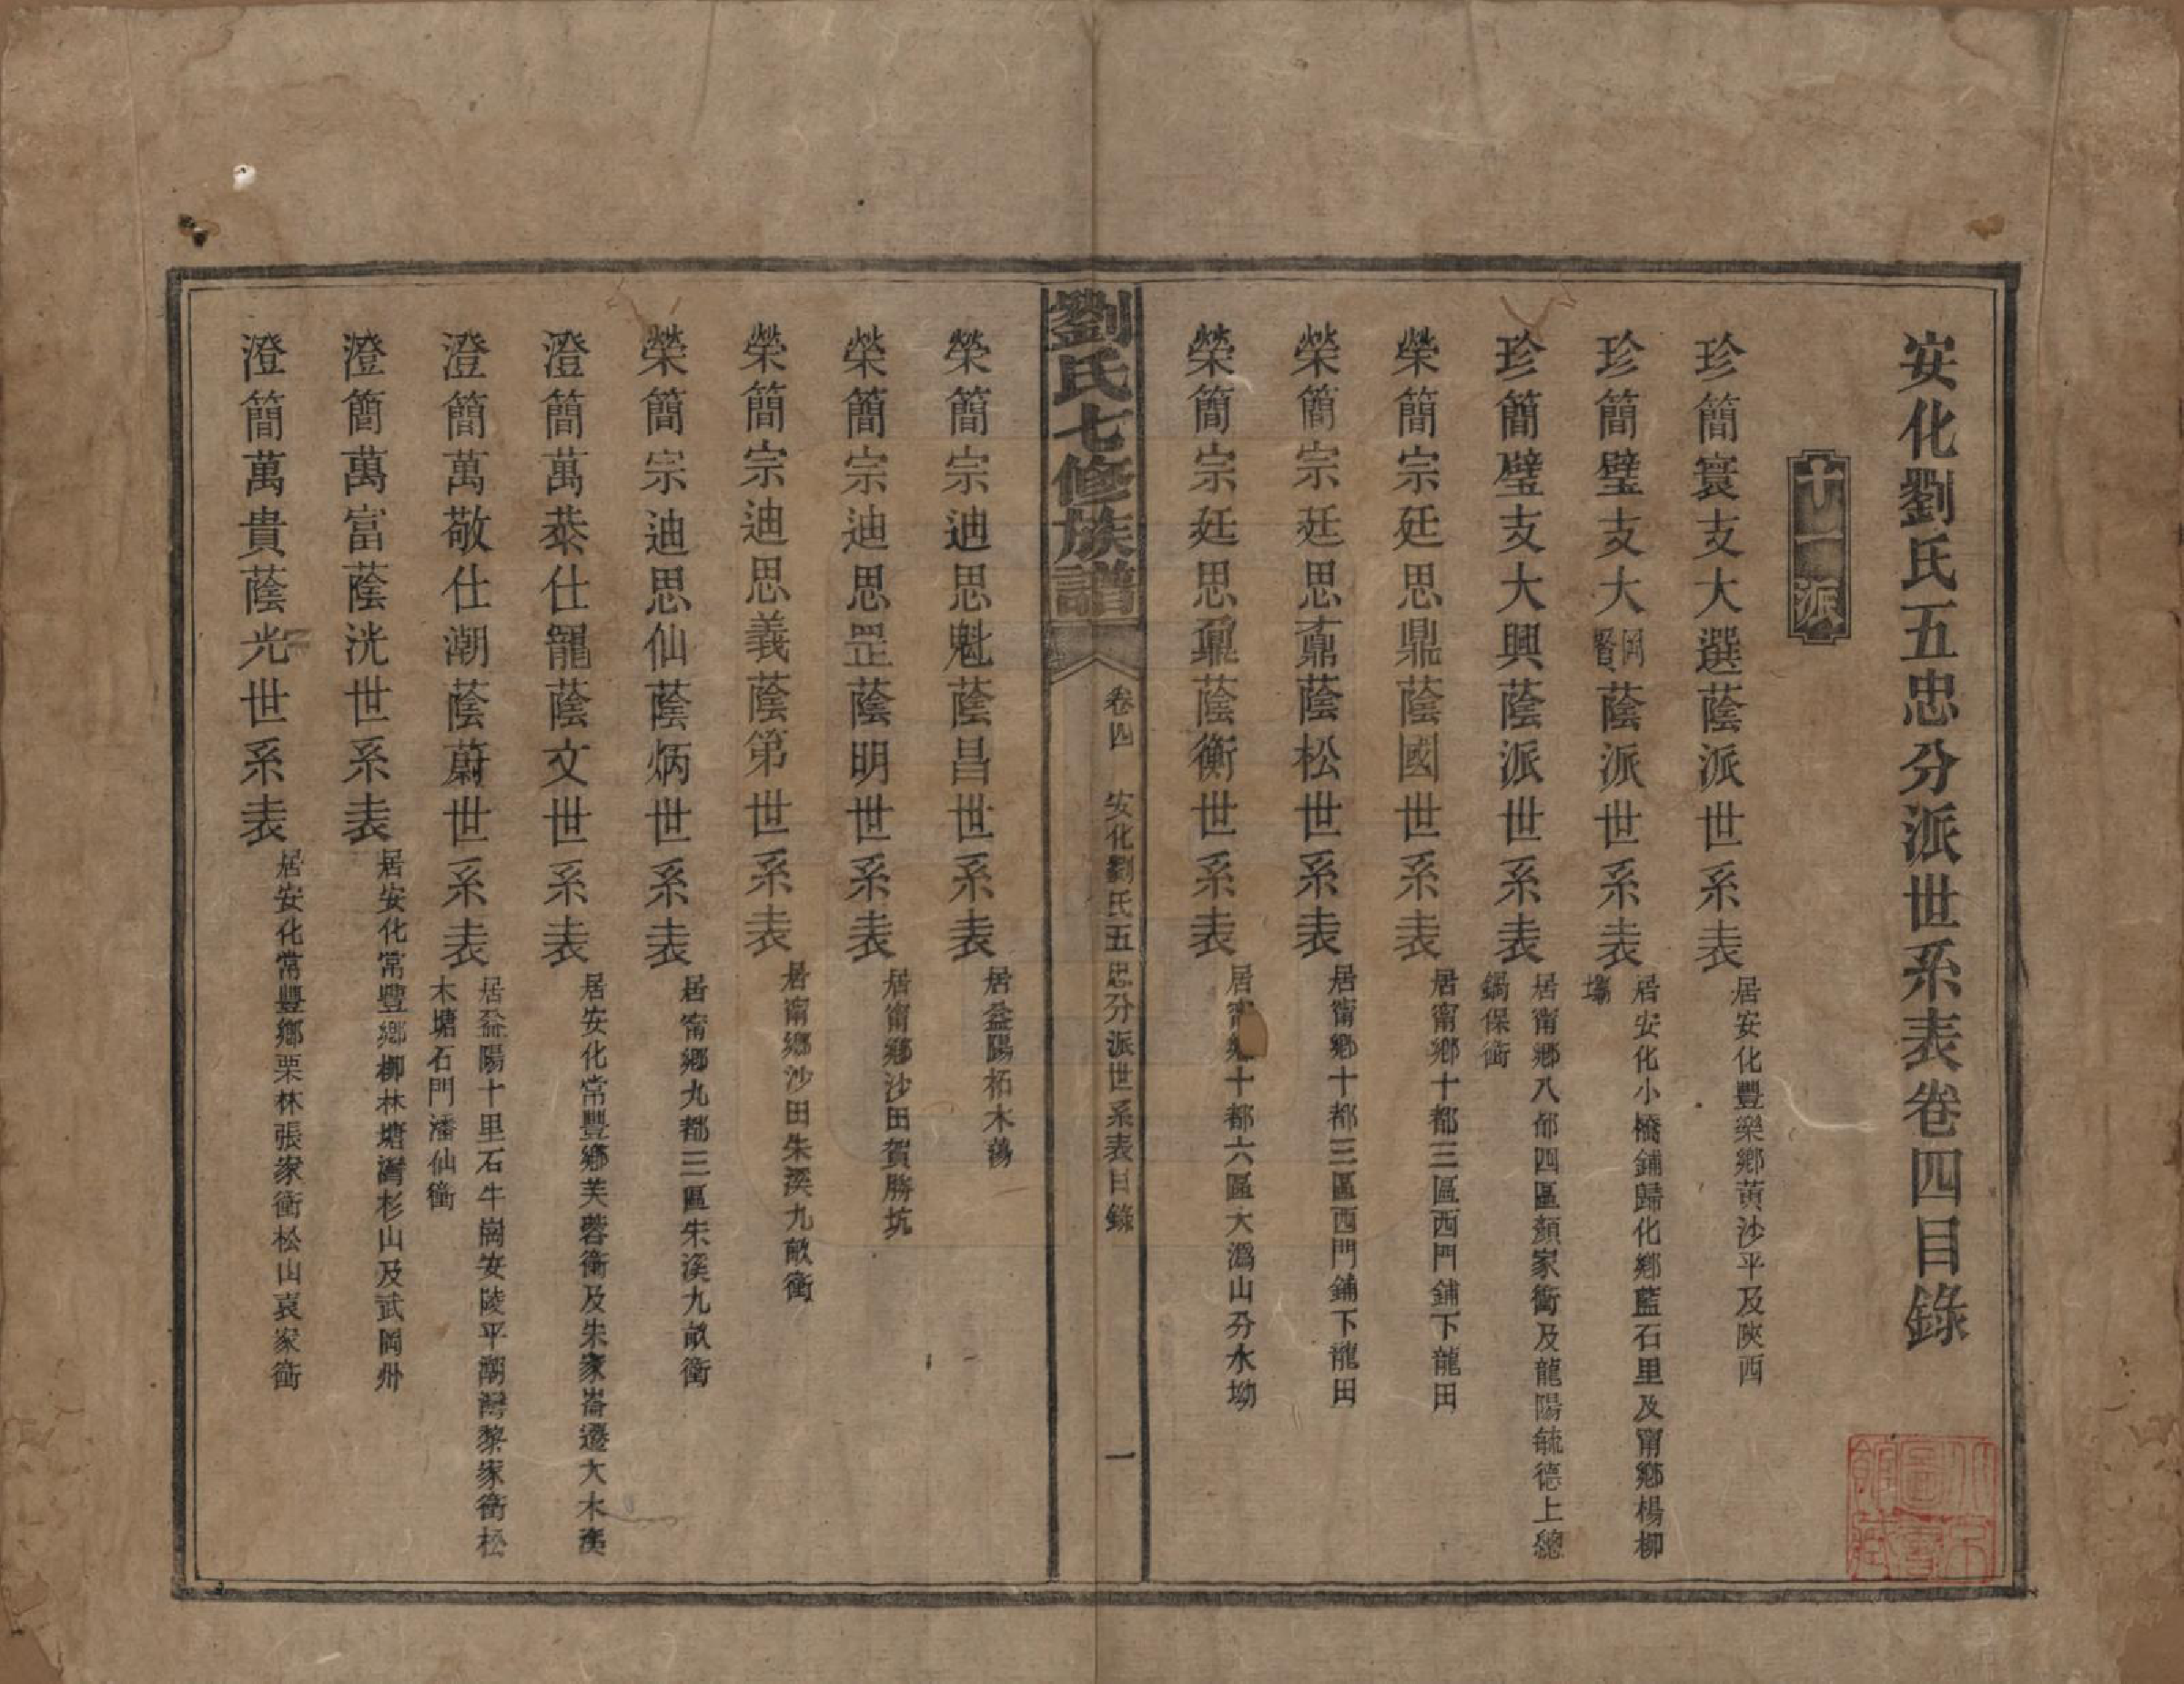 安化劉氏五忠分派世系表卷四目錄
十一派
珍簡寰支大選蔭派世系表 居安化豐樂鄉黃沙平及陝西
珍簡璧支大岡賢蔭派世系表 居安化小橋鋪歸化鄉藍石里及甯鄉楊柳塅
珍簡璧支大興蔭派世系表 居甯鄉八都四區顏家衝及龍陽毓德上總鍋保衝
榮簡宗廷思鼎蔭國世系表 居甯鄉十都三區西門鋪下龍田
榮簡宗廷思鼐蔭松世系表 居甯鄉十都三區西門鋪下龍田
榮簡宗廷思鼐蔭衡世系表 居甯鄉十都六區大溈山分水坳
劉氏七修族譜 卷四 安化劉氏五忠分派世系表目錄 一
榮簡宗迪思魁蔭昌世系表 居益陽柘木蕩
榮簡宗迪思罡蔭明世系表 居甯鄉沙田賀勝坑
榮簡宗迪思義蔭第世系表 居甯鄉沙田朱溪九畝衝
榮簡宗迪思仙蔭炳世系表 居甯鄉九都三區朱溪九畝衝
澄簡萬恭仕寵蔭文世系表 居安化常豐鄉芙蓉衝及朱家崙遷大木溪
澄簡萬敬仕潮蔭蔚世系表 居益陽十里石牛崗安陵平潮灣黎家衝松木塘石門潘仙衝
澄簡萬富蔭洸世系表 居安化常豐鄉柳林塘灣杉山及武岡州
澄簡萬貴蔭光世系表 居安化常豐鄉栗林張家衝松山袁家衝